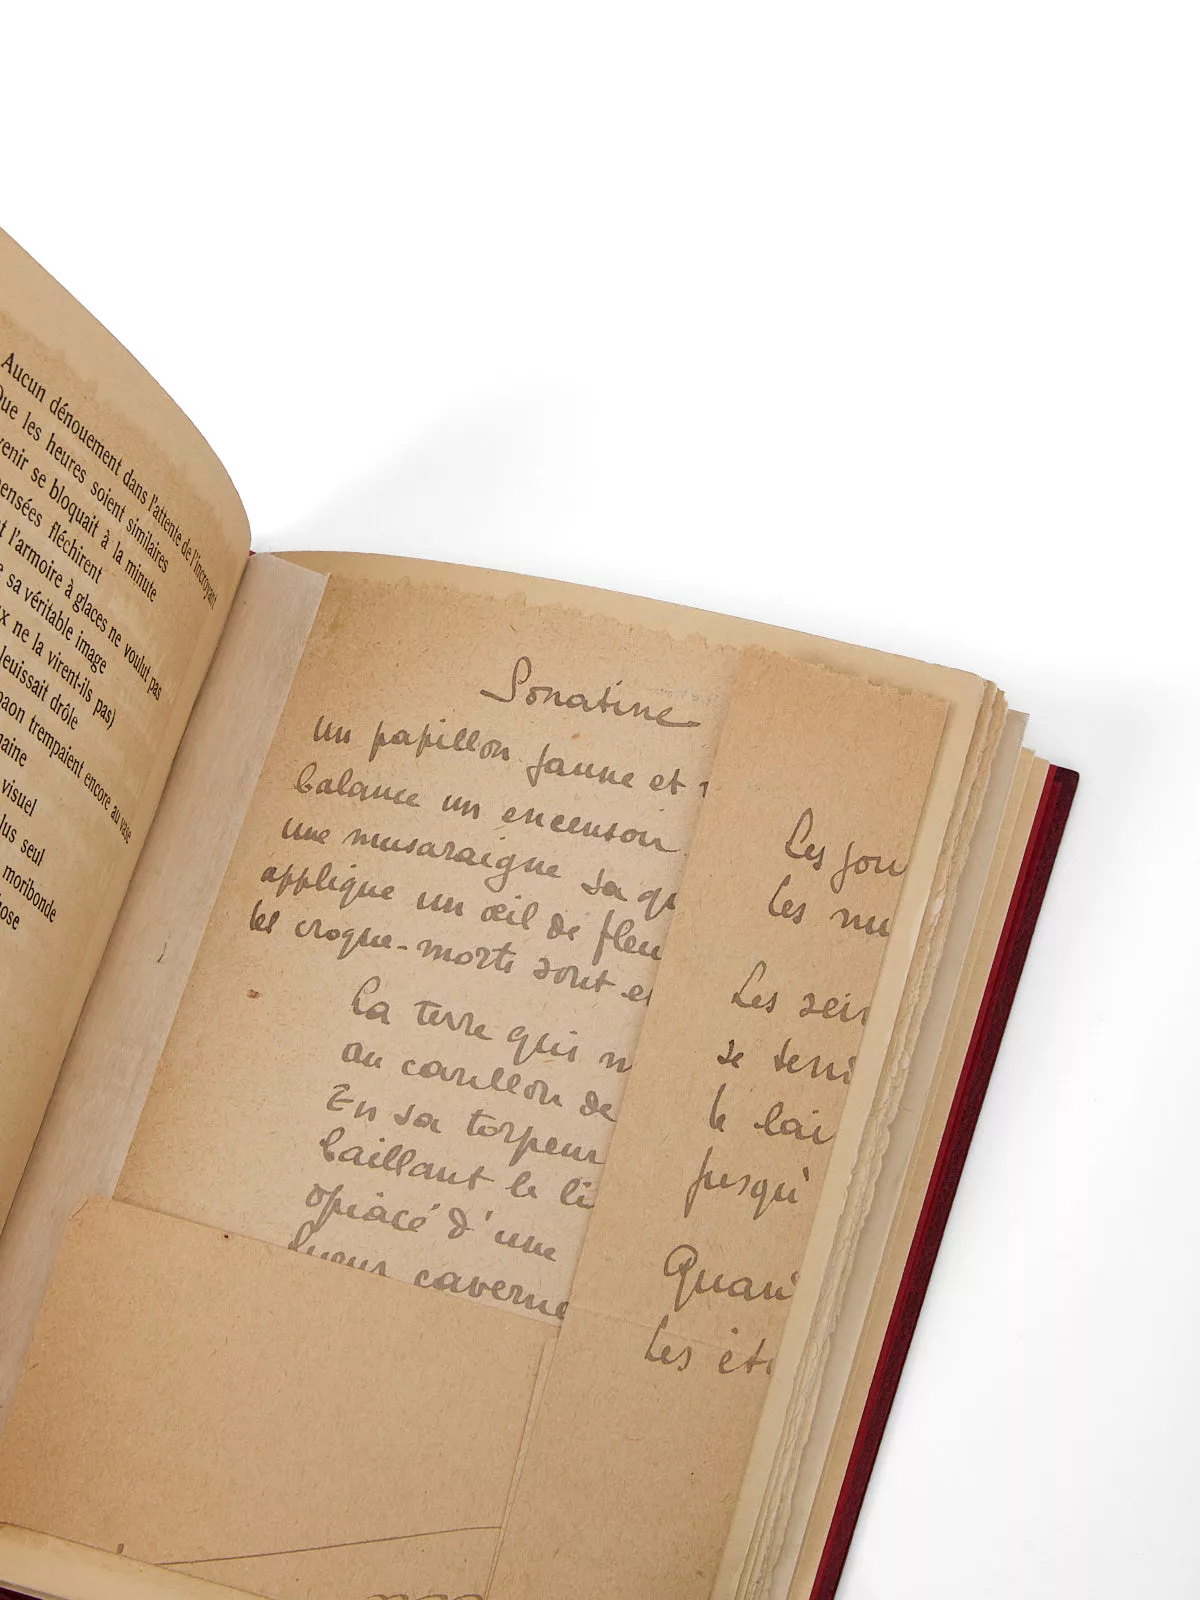 Aucun dénouement dans l'attente de l'incroyant
Que les heures soient similaires
venir se bloquait à la minute
pensées fléchirent
t l'armoire à glaces ne voulut pas
e sa véritable image
x ne la virent-ils pas)
leuissait drôle
paon trempaient encore au vase
naine
visuel
lus seul
moribonde
hose
Sonatine
un papillon jaune et
balance un encensoir
une musaraigne sa qu
applique un œil de fleu
les croque-morts sont e
La terre qui n
au carillon de
En sa torpeur
baillant le li
opiacé d'une
lueur caverne
Les jou
les nu
Les sein
se terni
le lai
jusqu'
Quan
Les ét